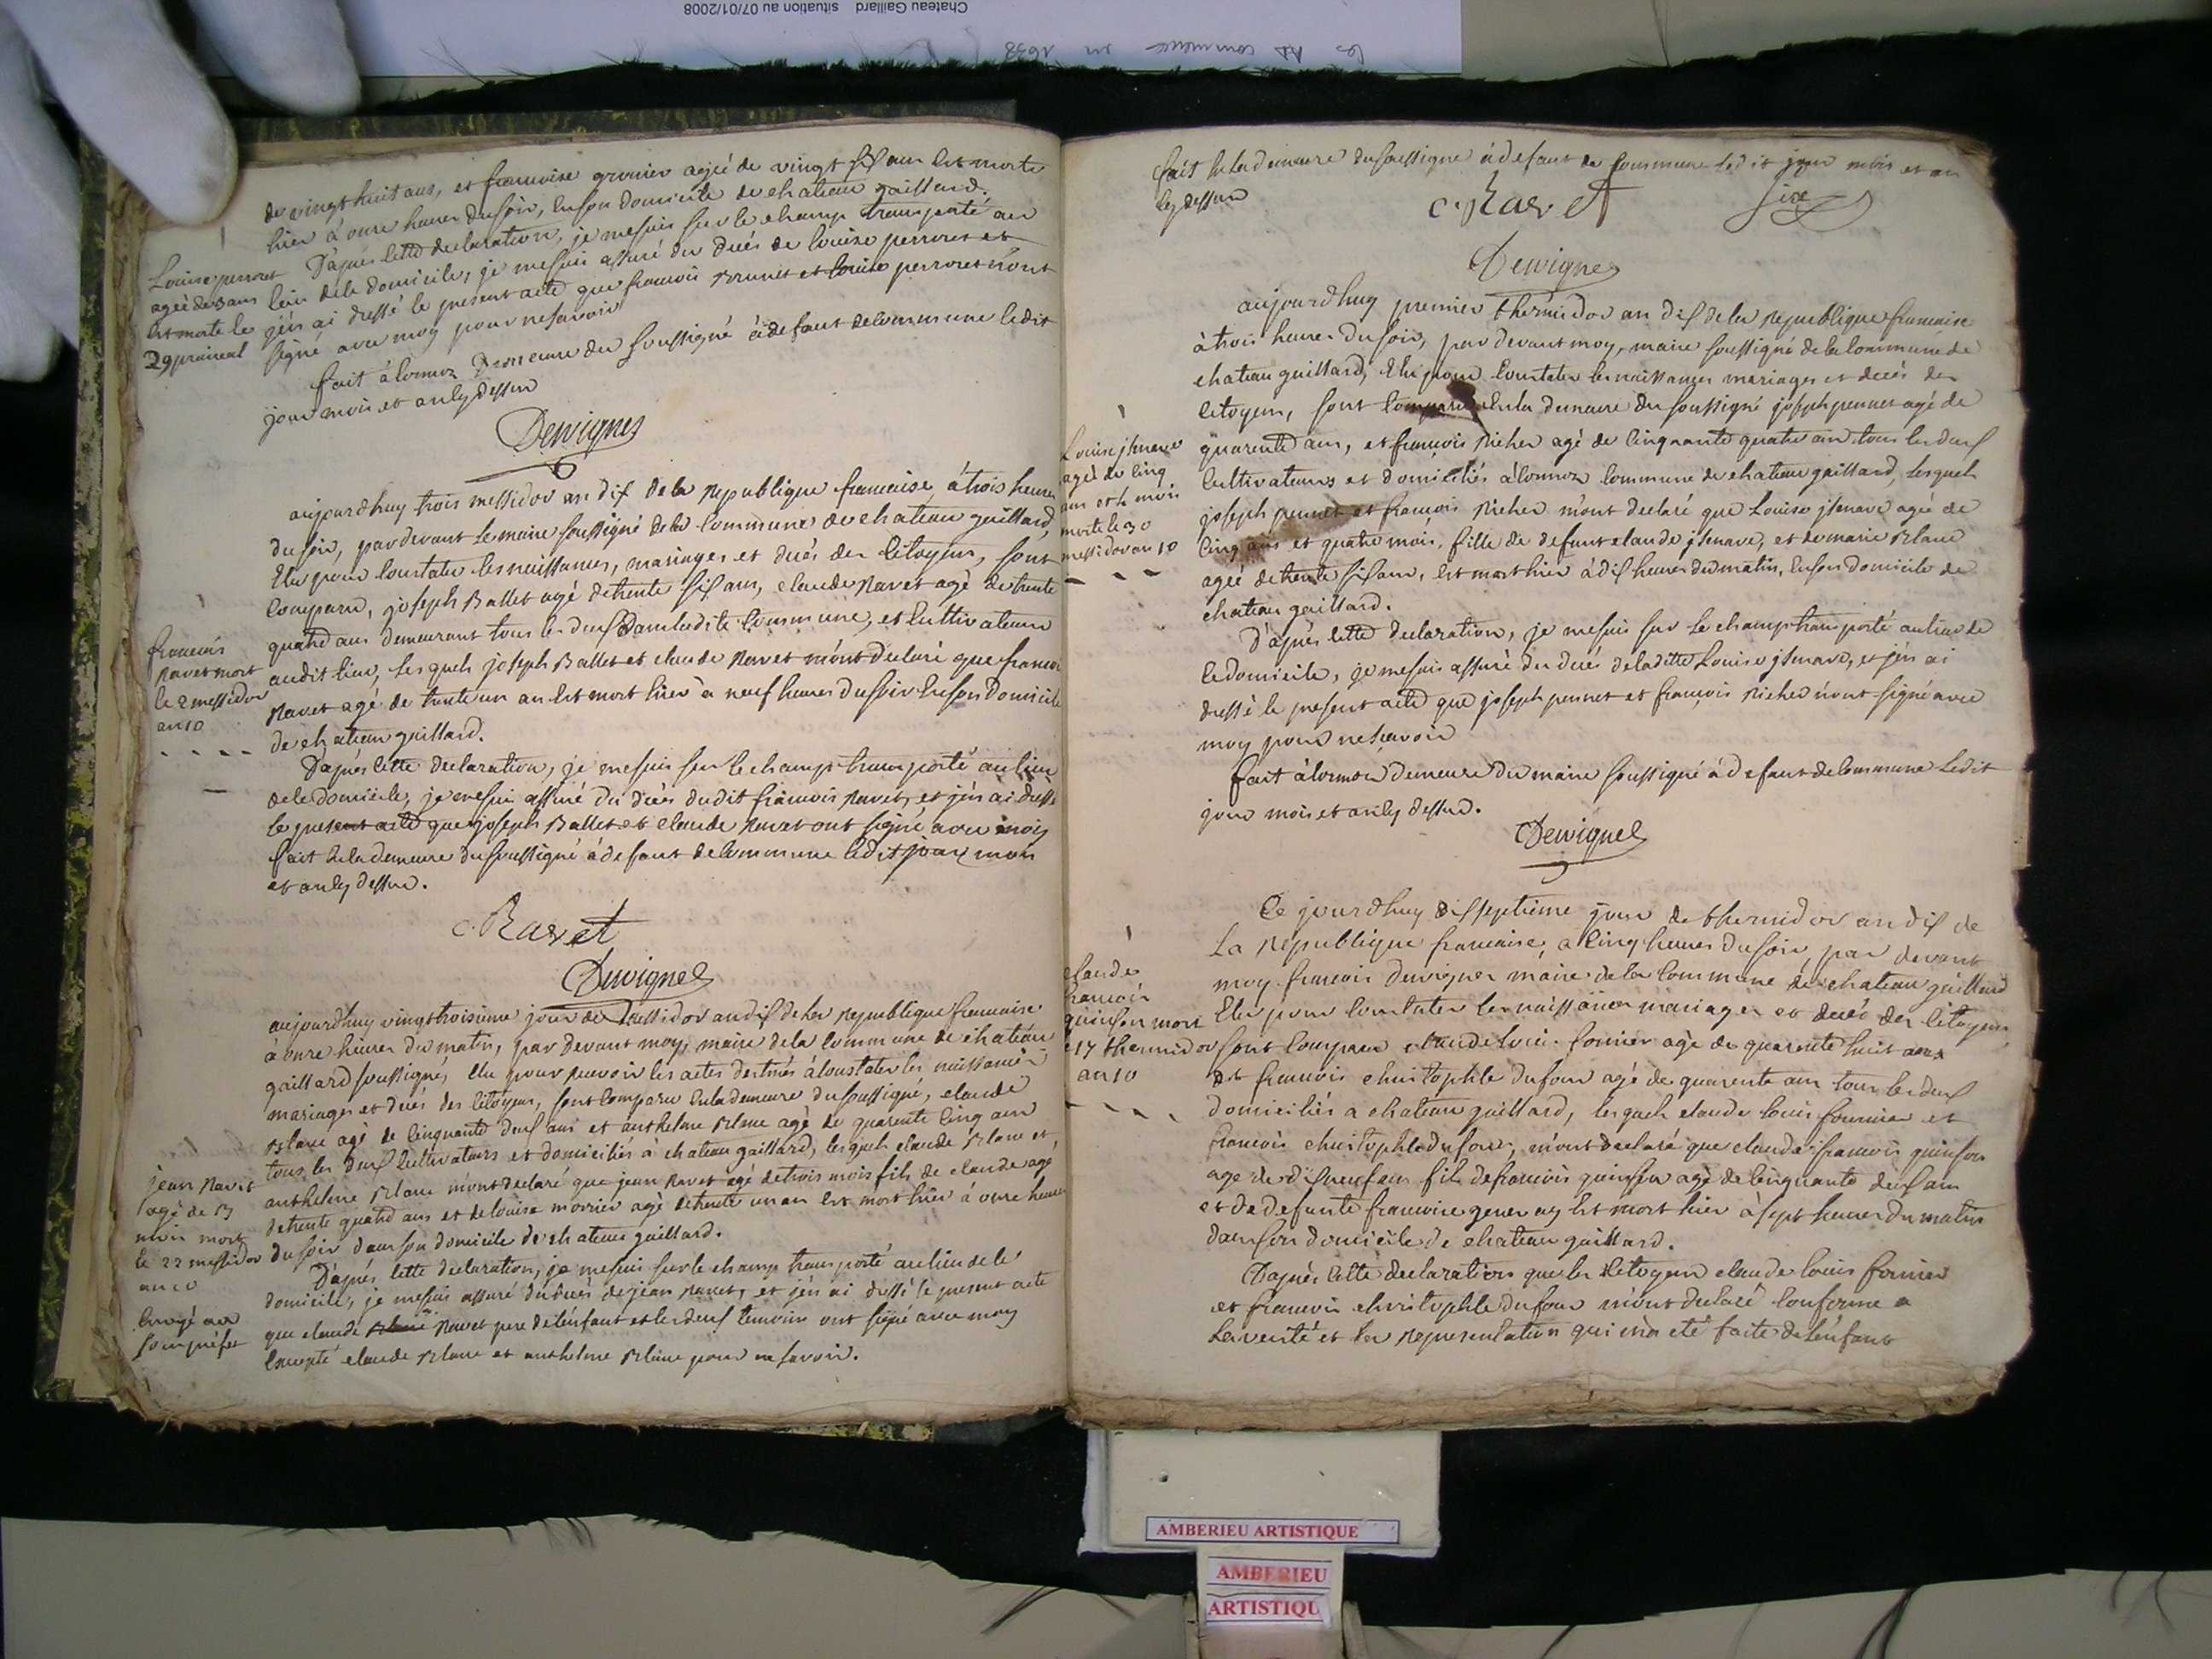 Chateau Gaillard situation au 07/01/2008
les commence en 1638
de vingt huit ans, et francoise grenier agée de vingt six ans est morte
hier à onze heures du soir, en son domicile de chateau gaillard.
D'apres cette declaration, je mesuis sur le champ transporté au
lieu de le domicile, je mesuis assuré du decés de louise perrones et
jén ai dressé le present acte que francois et louise perrones n'ont
signé avec moy pour ne savoir
fait à lormoz demeure du soussigné à defaut de commune ledit
jour mois et an cy dessus
Dervignes
Louise perrones
ageé de 3 ans
est morte le
29 prairial
aujourdhuy trois messidor an dix de la republique francaise, à trois heures
du soir, par devant le maire soussigné de la commune de chateau gaillard,
Elu pour constater les naissances, mariages et decés des citoyens, sont
comparu, joseph Ballet agé de trente six ans, claude Ravet agé de trente
quatre ans demeurant tous les deux dans ladite commune, et cultivateurs
audit lieu, lesquels joseph Ballet et claude Ravet m'ont declaré que francois
Ravet agé de trente un an est mort hier à neuf heures du soir en son domicile
de chateau gaillard.
D'apres cette declaration, je mesuis sur le champ transporté au lieu
de le domicile, je mesuis assuré du decés dudit francois Ravet, et jén ai dressé
le present acte que joseph Ballet et claude Ravet ont signé avec moy
fait en la demeure du soussigné à defaut de commune ledit jour mois
et an cy dessus.
C. Ravet
Dervignes
francois
Ravet mort
le 2 messidor
an 10
aujourdhuy vingt troisieme jour de messidor an dix de la republique francaise
à onze heures du matin, par devant moy, maire de la commune de chateau
gaillard soussigné, elu pour recevoir les actes destinés à constater les naissances
mariages et decés des citoyens, sont comparu en la demeure du soussigné, claude
Blanc agé de cinquante deux ans et anthelme Blanc agé de quarante cinq ans
tous les deux cultivateurs et domiciliés à chateau gaillard, lesquels claude Blanc et
anthelme Blanc m'ont declaré que jean Ravet agé de trois mois fils de claude agé
de trente quatre ans et de louise morrier agé de trente un an est mort hier à onze heures
du soir dans son domicile de chateau gaillard.
D'apres cette declaration, je mesuis sur le champ transporté au lieu de le
domicile, je mesuis assuré du decés de jean Ravet, et jén ai dressé le present acte
que claude Ravet pere de lénfant et les deux temoins ont signé avec moy
excepté claude Blanc et anthelme Blanc pour ne savoir.
jean Ravet
agé de
mois mort
le 22 messidor
an 10
Envoyé au
souspréfet
fait en la demeure du soussigné à defaut de commune ledit jour mois et an
cy dessus
C. Ravet
sire
Dervignes
aujourdhuy premier thermidor an dix de la republique francaise
à trois heures du soir, par devant moy, maire soussigné de la commune de
chateau gaillard, Elu pour constater les naissances mariages et decés des
citoyens, sont comparu en la demeure du soussigné joseph pennet agé de
quarente ans, et francois Richer agé de cinquante quatre ans tous les deux
cultivateurs et domiciliés à lormoz commune de chateau gaillard, lesquels
joseph pennet et francois Richer m'ont declaré que Louise jsenave ageé de
cinq ans et quatre mois, fille de defunt claude jsenave, et de marie Blanc
ageé de trente six ans, est mort hier à dix heures du matin, en son domicile de
chateau gaillard.
D'apres cette declaration, je mesuis sur le champ transporté au lieu de
le domicile, je mesuis assuré du decés de laditte Louise jsenave, et jén ai
dressé le present acte que joseph pennet et françois Richer n'ont signé avec
moy pour ne savoir
fait à lormoz demeure du maire soussigné à defaut de commune ledit
jour mois et an cy dessus.
Dervignes
Louise jsenave
ageé de cinq
ans et 4 mois
morte le 30
messidor an 10
Ce jourdhuy dixseptieme jour de thermidor an dix de
La republique francaise, à cinq heures du soir, par devant
moy francois dervignes maire de la commune de chateau gaillard
Elu pour constater les naissances mariages et decés des citoyens
sont comparu claude louis fornier agé de quarente huit ans
et francois christophle dufour agé de quarente ans tous les deux
domiciliés a chateau gaillard, lesquels claude louis fournier et
francois christophle dufour, m'ont declaré que claude francois quinson
age de dixneuf ans fils de francois quinson agé de cinquante deux ans
et de defunte francoise genevay est mort hier à sept heures du matin
dans son domicile de chateau gaillard.
D'apres cette declaration que les citoyens claude louis fornier
et francois christophle dufour m'ont declaré conforme a
la verité et la representation qui m'a eté faite de lénfant
claude
francois
quinson mort
le 17 thermidor
an 10
AMBERIEU ARTISTIQUE
AMBERIEU
ARTISTIQU